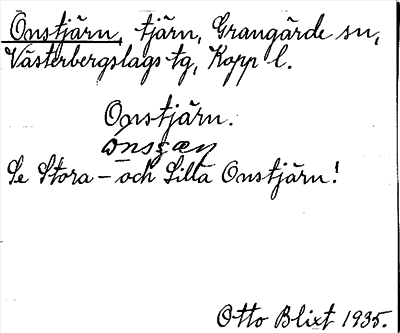 Onstjärn, tjärn, Grangärde sn,
Västerbergslags tg, Kopp l.
Onstjärn.
Se Stora - och Lilla Onstjärn!
Otto Blixt 1935.